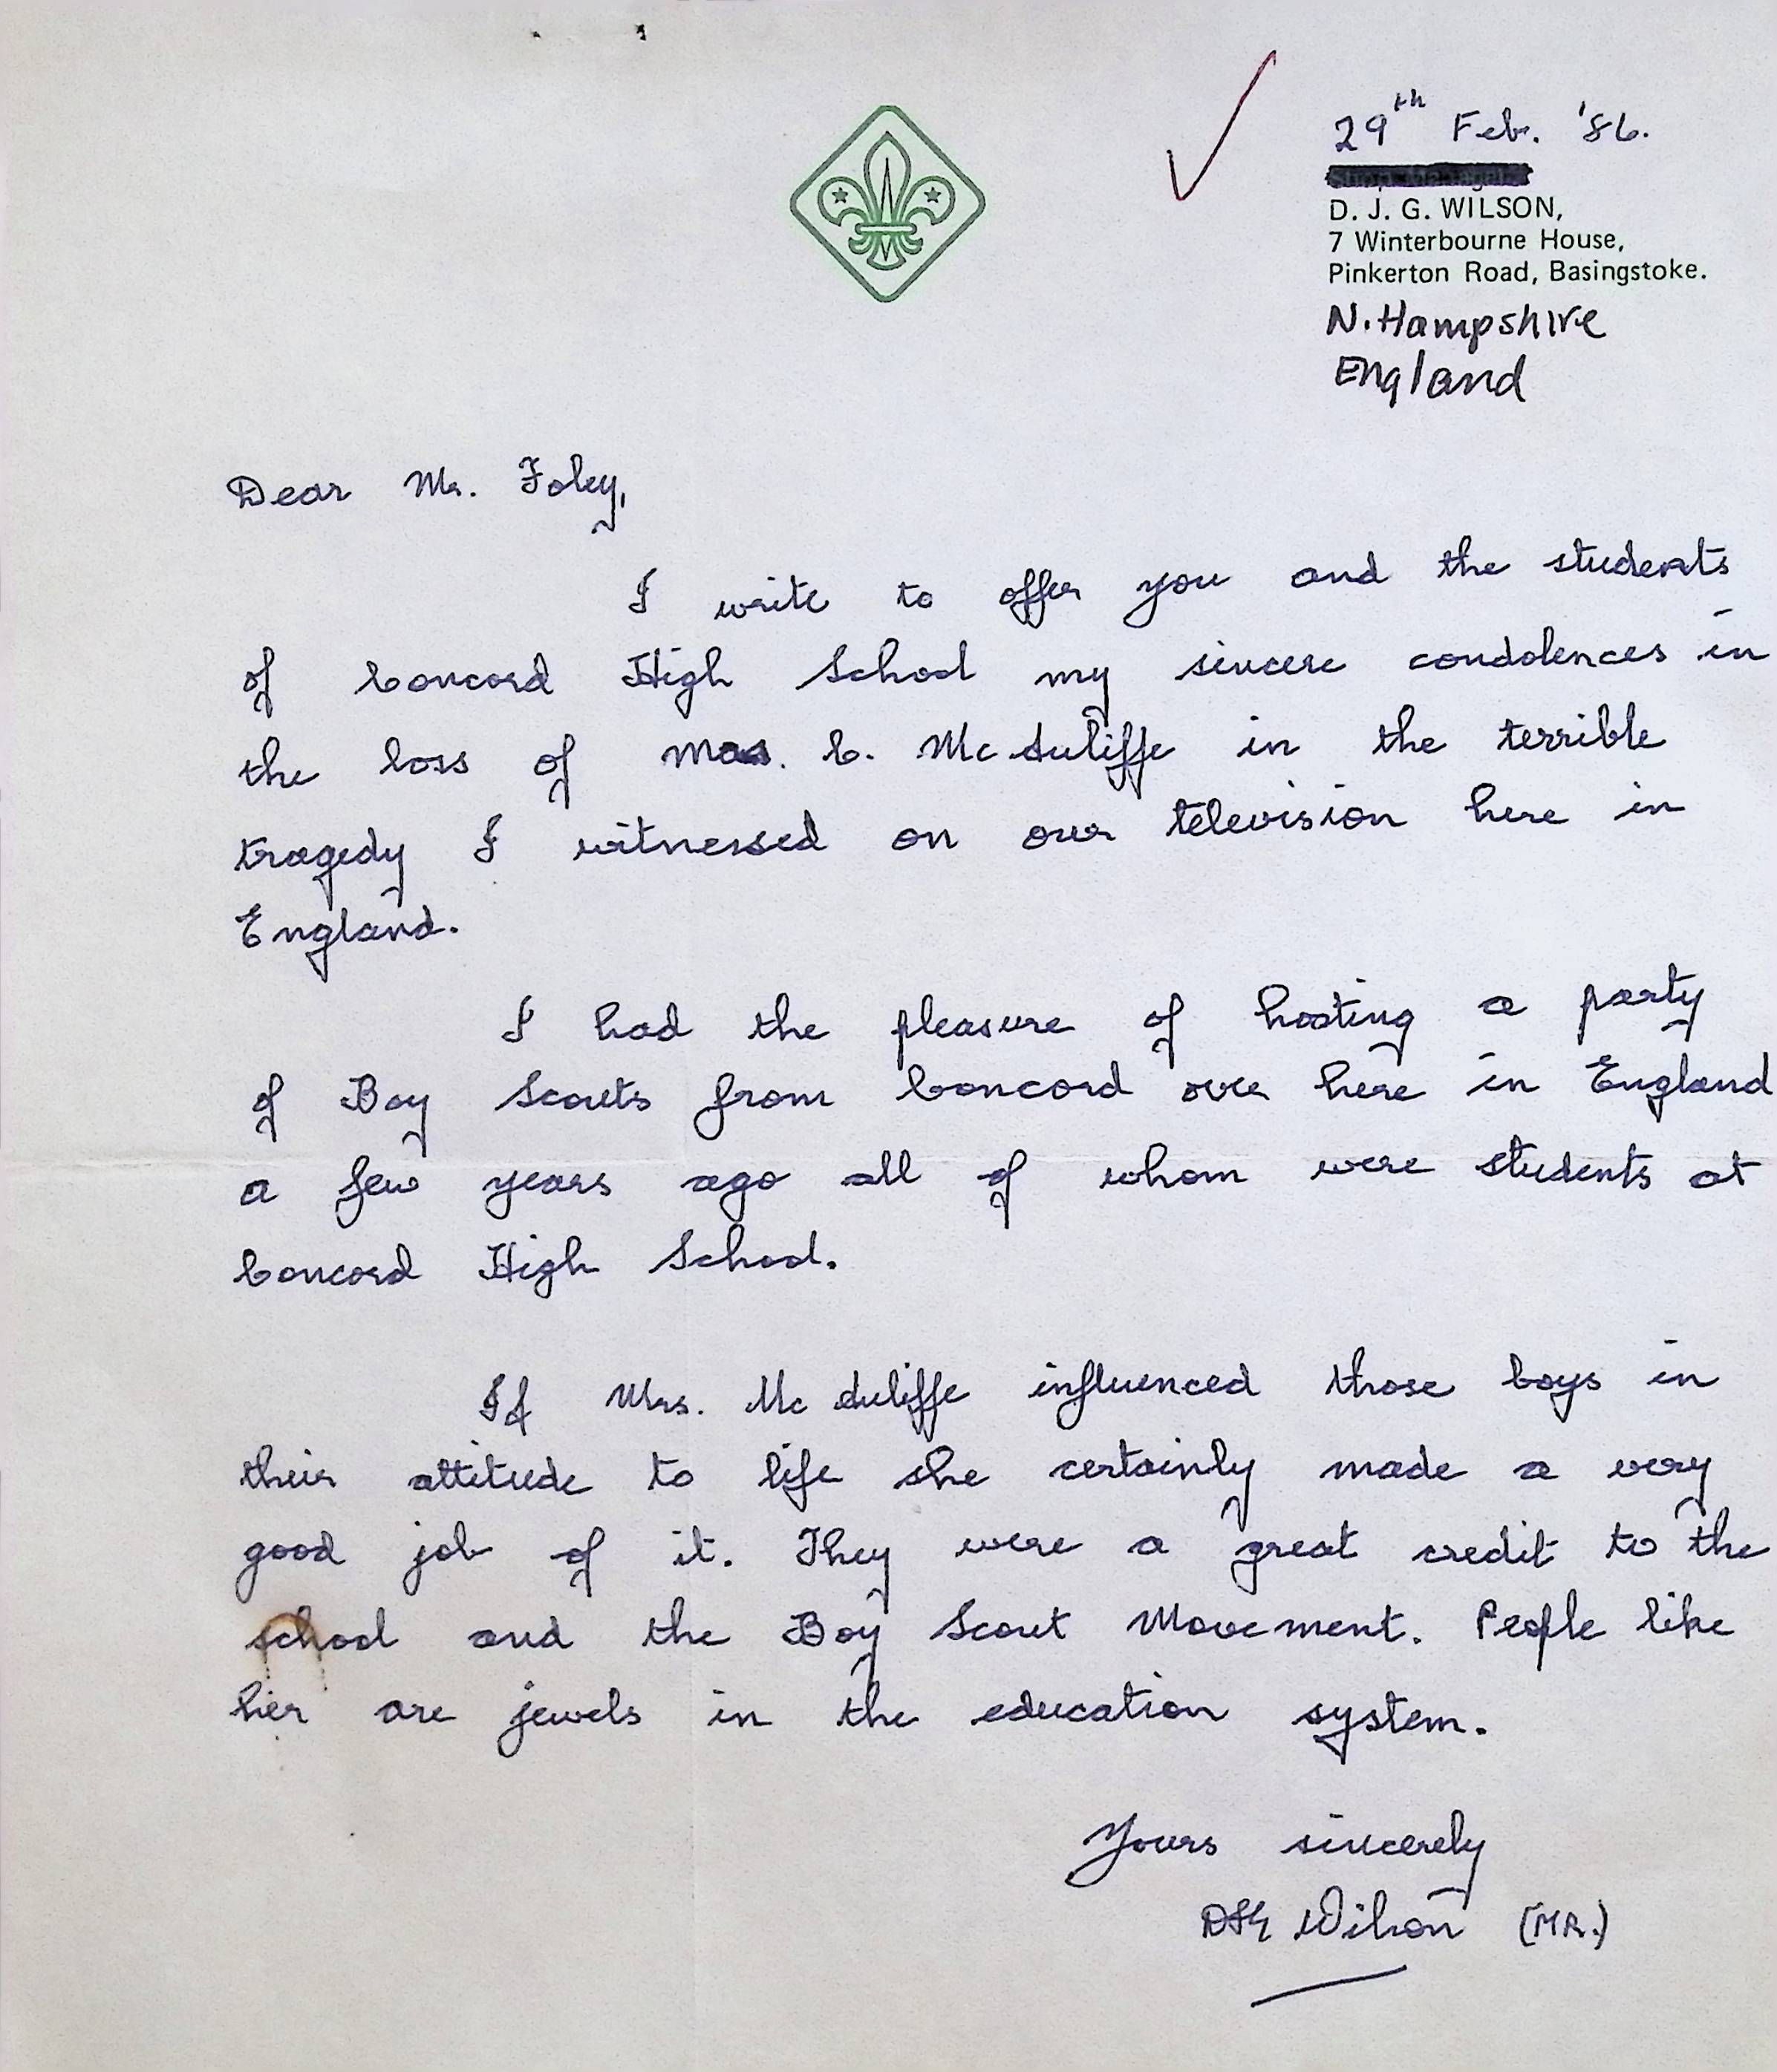 29th Feb. '86.
D. J. G. WILSON,
7 Winterbourne House,
Pinkerton Road, Basingstoke.
N. Hampshire
England
Dear Mr. Foley,
I write to offer you and the students
of Concord High School my sincere condolences in
the loss of Mrs. C. McAuliffe in the terrible
tragedy I witnessed on our television here in
England.
I had the pleasure of hosting a party
of Boy Scouts from Concord over here in England
a few years ago all of whom were students at
Concord High School.
If Mrs. McAuliffe influenced those boys in
their attitude to life she certainly made a very
good job of it. They were a great credit to the
school and the Boy Scout Movement. People like
her are jewels in the education system.
Yours sincerely
DJG Wilson (MR.)